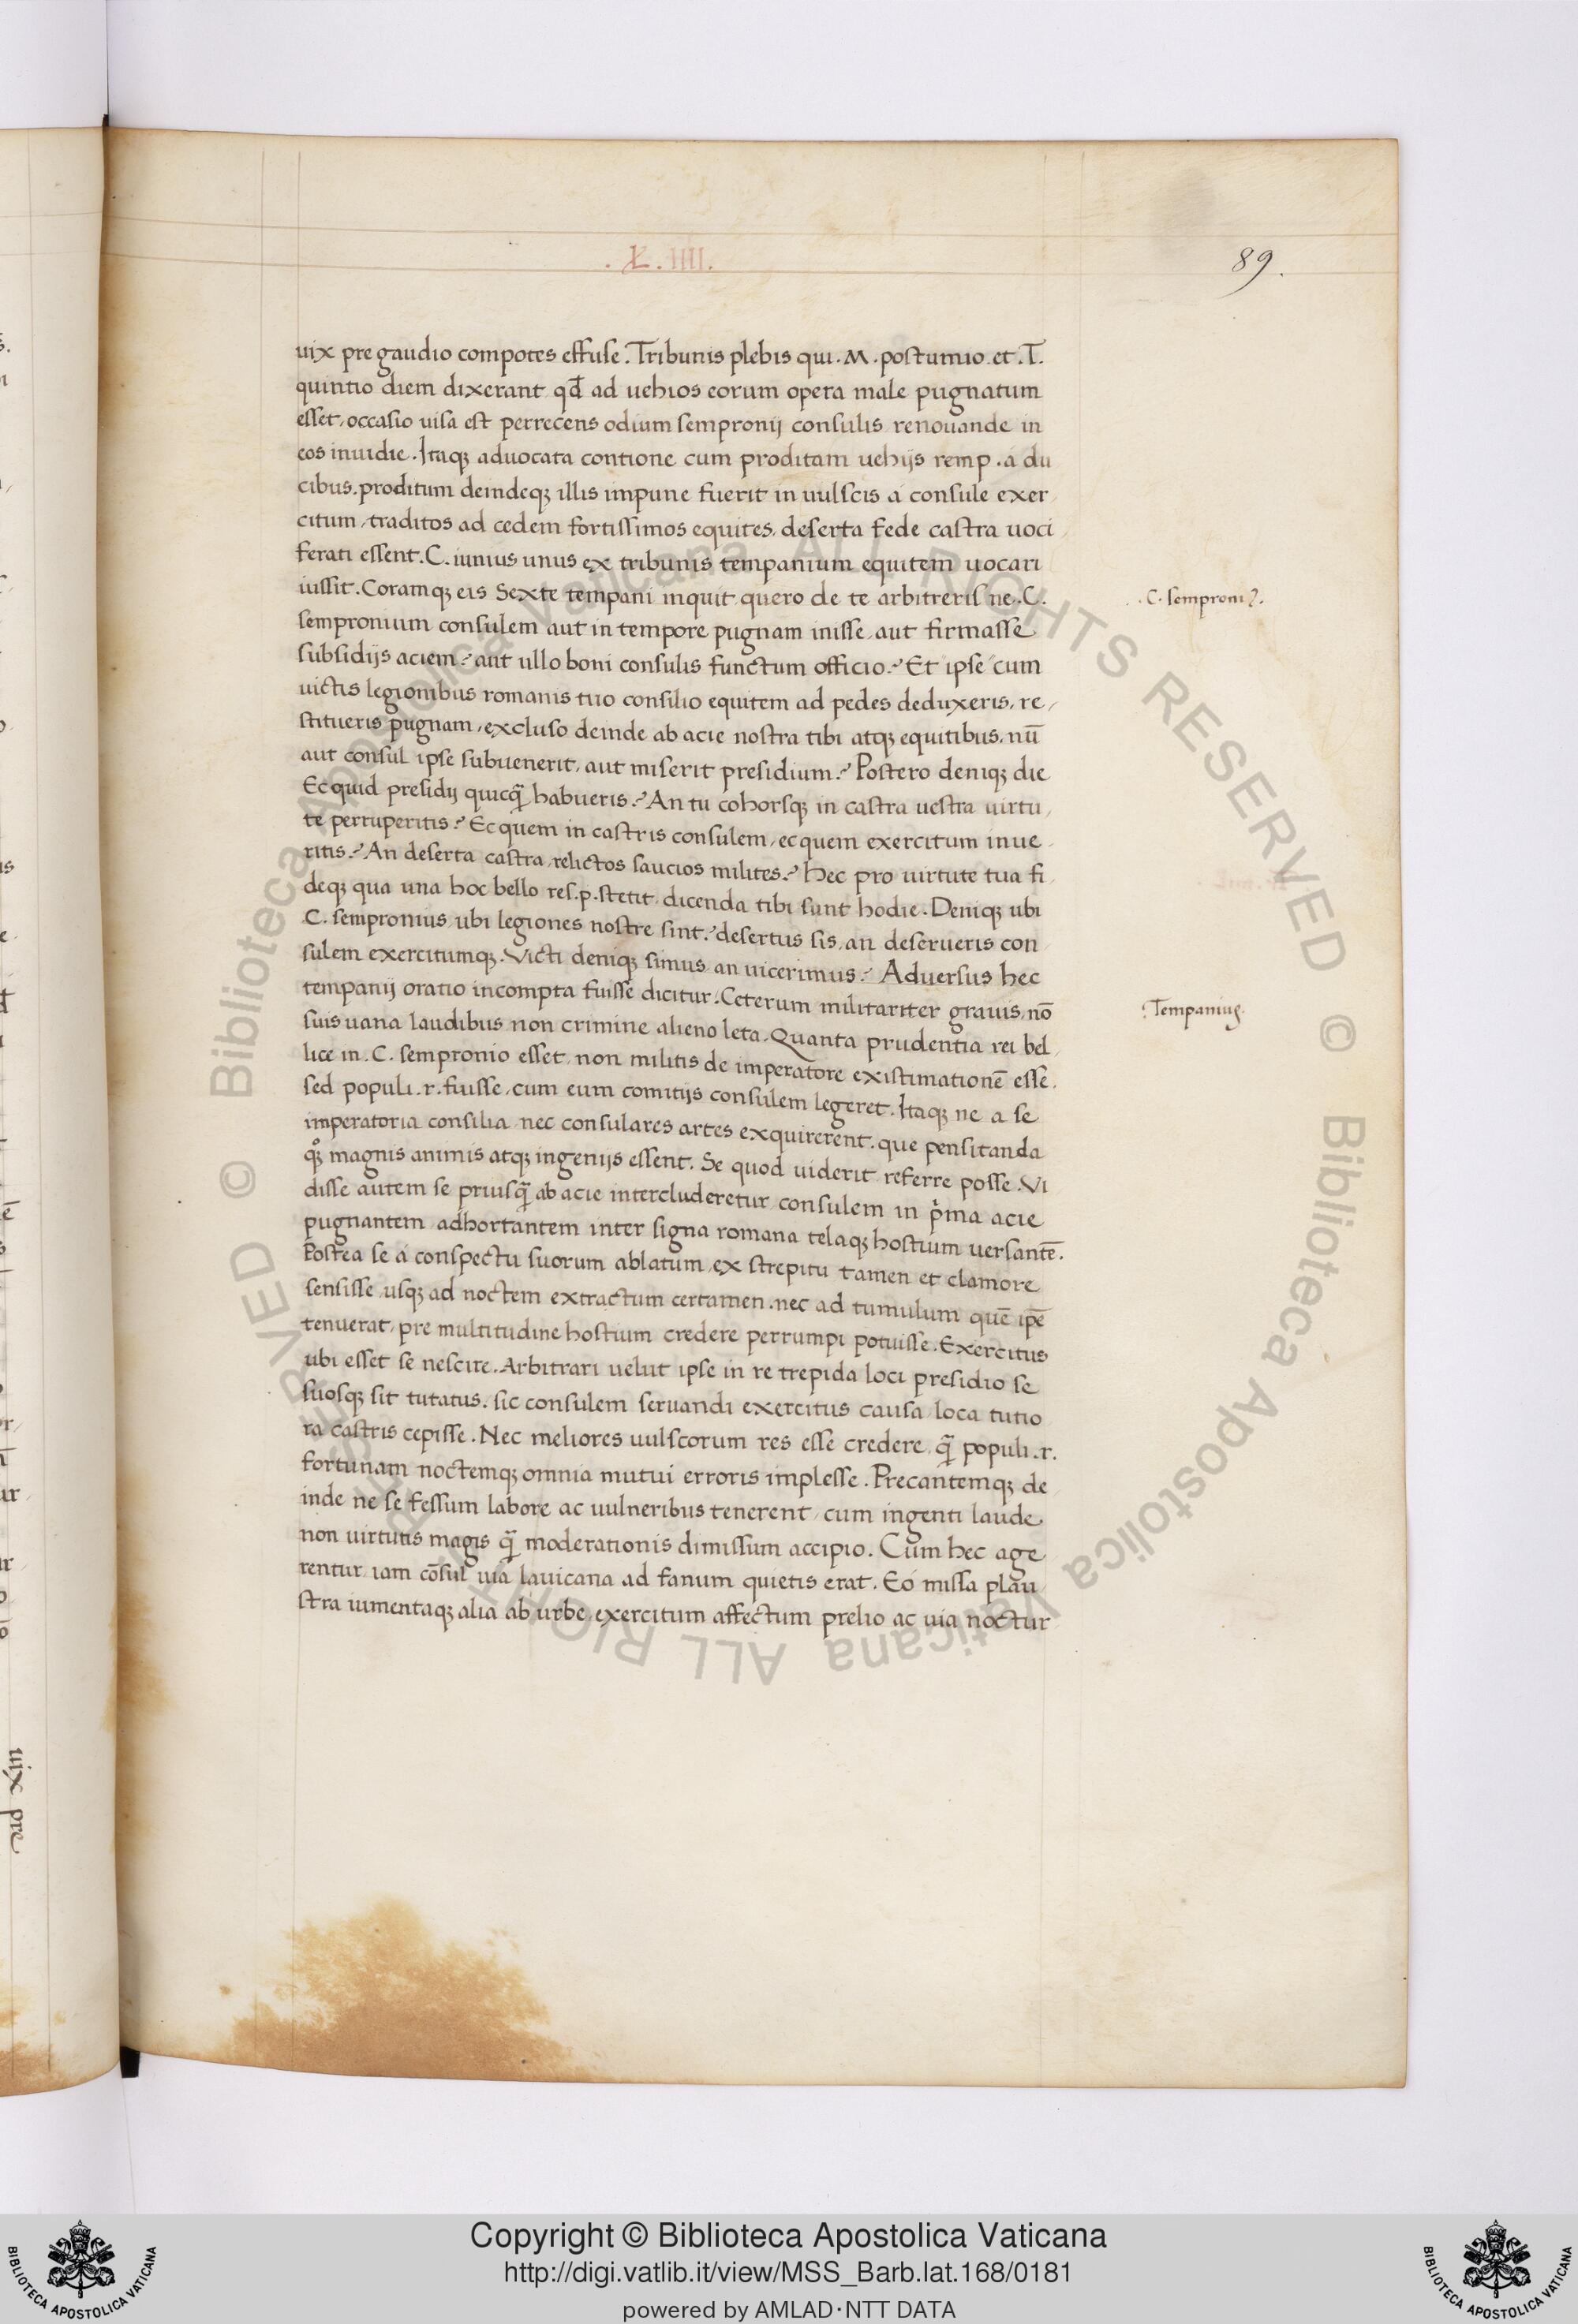 .L.IIII.
89.
uix pre gaudio compotes effuse. Tribunis plebis qui .M. postumio et .T.
quintio diem dixerant qđ ad uehios eorum opera male pugnatum
esset, occasio uisa est per recens odium sempronij consulis renouande in
eos inuidie. Itaqꝫ aduocata contione cum proditam uehijs remp. á du
cibus. proditum deindeqꝫ illis impune fuerit in uulscis á consule exer
citum, traditos ad cedem fortissimos equites, deserta fede castra uoci
ferati essent. C. iunius unus ex tribunis tempanium equitem uocari
iussit. Coramqꝫ eis Sexte tempani inquit quero de te arbitreris ne .C.
.C. semproniꝰ.
sempronium consulem aut in tempore pugnam inisse, aut firmasse
subsidijs aciem? aut ullo boni consulis functum officio? Et ipse cum
uictis legionibus romanis tuo consilio equitem ad pedes deduxeris, re
stitueris pugnam, excluso deinde ab acie nostra tibi atqꝫ equitibus, nū
aut consul ipse subuenerit, aut miserit presidium? Postero deniqꝫ die
Ecquid presidij quicq̄ habueris? An tu cohorsqꝫ in castra uestra uirtu
te perruperitis? Ecquem in castris consulem, ecquem exercitum inue
ritis? An deserta castra, relictos saucios milites? hec pro uirtute tua fi
deqꝫ qua una hoc bello res .p. stetit, dicenda tibi sunt hodie. Deniqꝫ ubi
C. sempronius, ubi legiones nostre sint? desertus sis, an deserueris con
sulem exercitumqꝫ. Victi deniqꝫ simus an uicerimus? Aduersus hec
tempanij oratio incompta fuisse dicitur. Ceterum militariter grauis, nō
Tempanius
suis uana laudibus non crimine alieno leta. Quanta prudentia rei bel
lice in .C. sempronio esset, non militis de imperatore existimationē esse.
sed populi .r. fuisse, cum eum comitijs consulem legeret. Itaqꝫ ne a se
imperatoria consilia nec consulares artes exquirerent. que pensitanda
qꝫ magnis animis atqꝫ ingenijs essent. Se quod uiderit referre posse. Vi
disse autem se priusq̄ ab acie intercluderetur consulem in p̄ma acie
pugnantem adhortantem inter signa romana telaqꝫ hostium uersantē.
Postea se á conspectu suorum ablatum, ex strepitu tamen et clamore
sensisse usqꝫ ad noctem extractum certamen. nec ad tumulum quē ip̄e
tenuerat, pre multitudine hostium credere perrumpi potuisse. Exercitus
ubi esset se nescire. Arbitrari uelut ipse in re trepida loci presidio se
suosqꝫ sit tutatus. sic consulem seruandi exercitus causa loca tutio
ra castris cepisse. Nec meliores uulscorum res esse credere, q̄ populi .r.
fortunam noctemqꝫ omnia mutui erroris implesse. Precantemqꝫ de
inde ne se fessum labore ac uulneribus tenerent, cum ingenti laude
non uirtutis magis q̄ moderationis dimissum accipio. Cum hec age
rentur iam cōsul uia lauicana ad fanum quietis erat. Eó missa plau
stra iumentaqꝫ alia ab urbe, exercitum affectum prelio ac uia noctur
uix pre
Copyright © Biblioteca Apostolica Vaticana
http://digi.vatlib.it/view/MSS_Barb.lat.168/0181
powered by AMLAD·NTT DATA